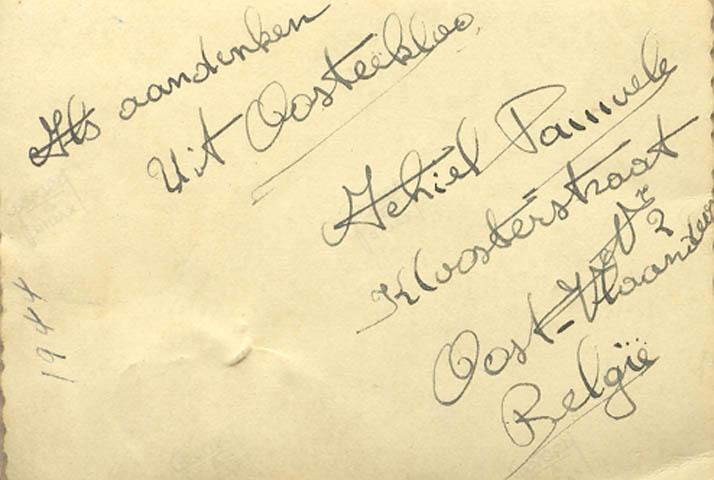 Als aandenken
Uit Oosteeklo
Achiel Pauwels
Kloosterstraat
Nr 2
Oost-Vlaanderen
België
1944